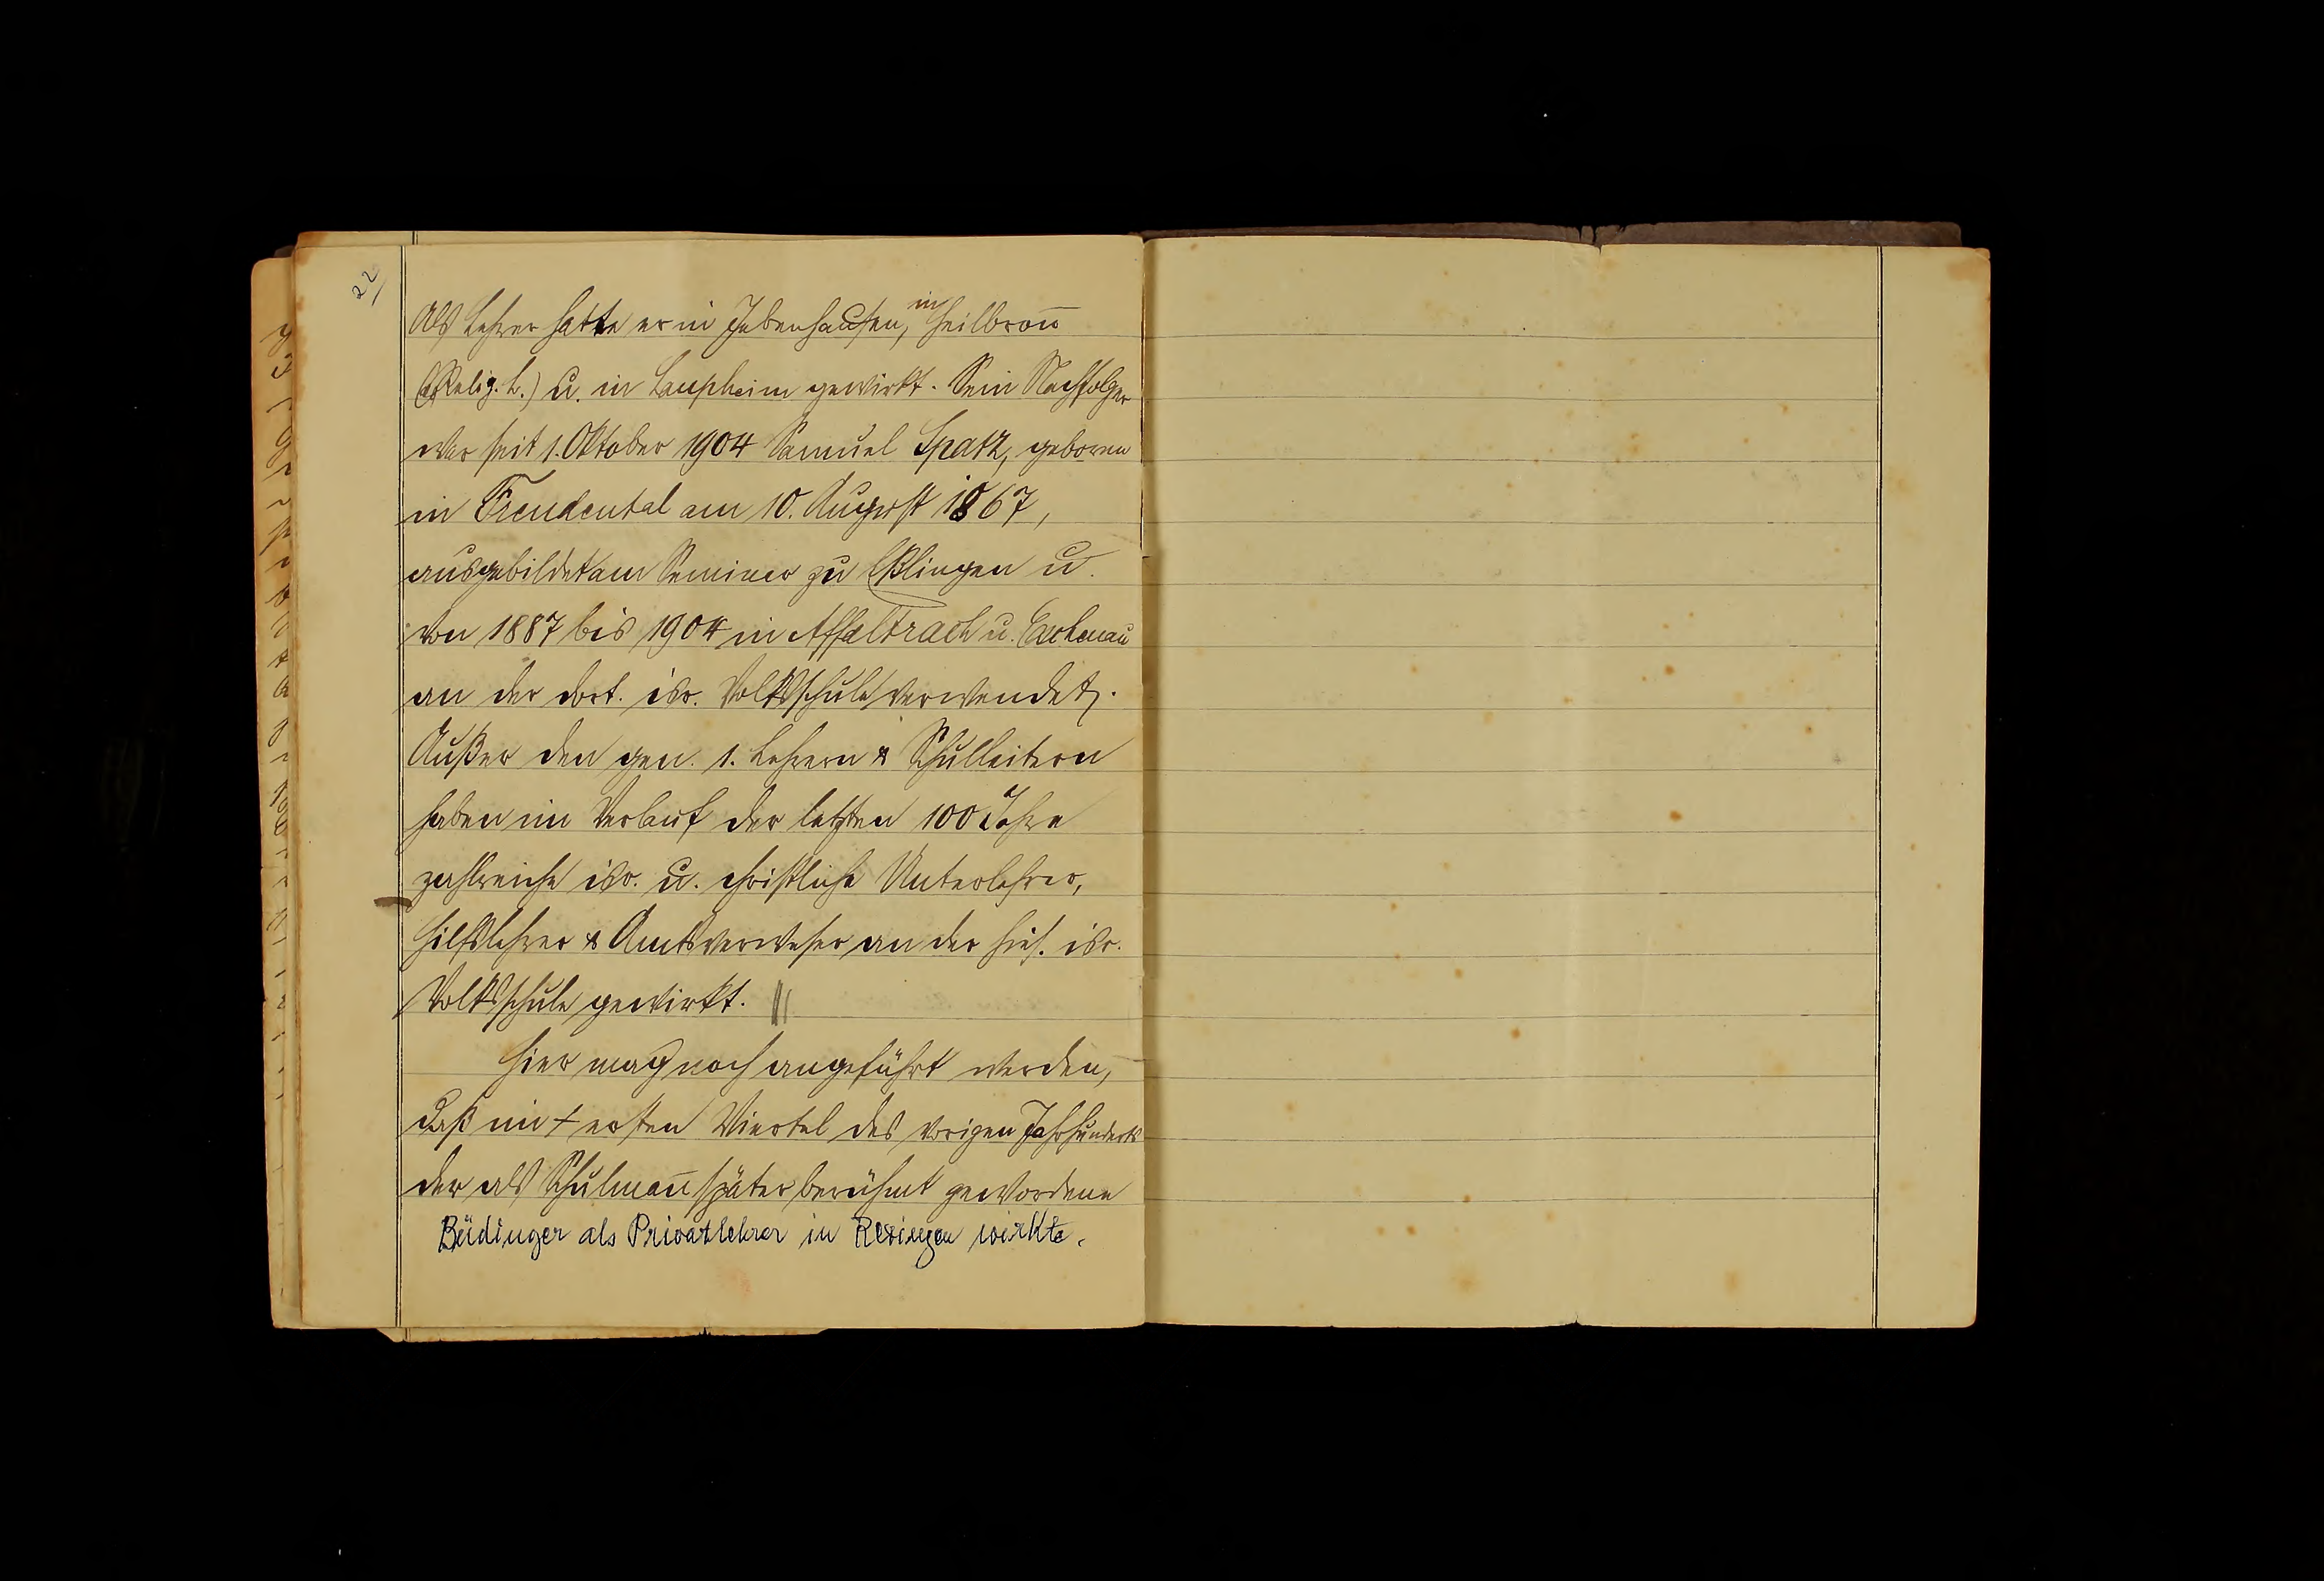 22/
Als Lehrer hatte er in Jebenhausen, in Heilbron̄
(Relig. L.) u. in Laupheim gewirkt. Sein Nachfolger
war seit 1. Oktober 1904 Samuel Spatz, geboren
in Freudental am 10. August 1867,
ausgebildet am Seminar zu Eßlingen u.
von 1887 bis 1904 in Affaltrach u. Eschenau
an der dort. isr. Volksschule verwendet.
Außer den gen. 1. Lehrern & Schulleitern
haben im Verlauf der letzten 100 Jahre
zahlreiche isr. u. christliche Unterlehrer,
Hilfslehrer & Amtsverweser an der hies. isr.
Volksschule gewirkt.
Hier mag noch angeführt werden,
daß im ersten Viertel des vorigen Jahrhunderts
der als Schulman̄ später berühmt gewordene
Büdinger als Privatlehrer in Rexingen wirkte.